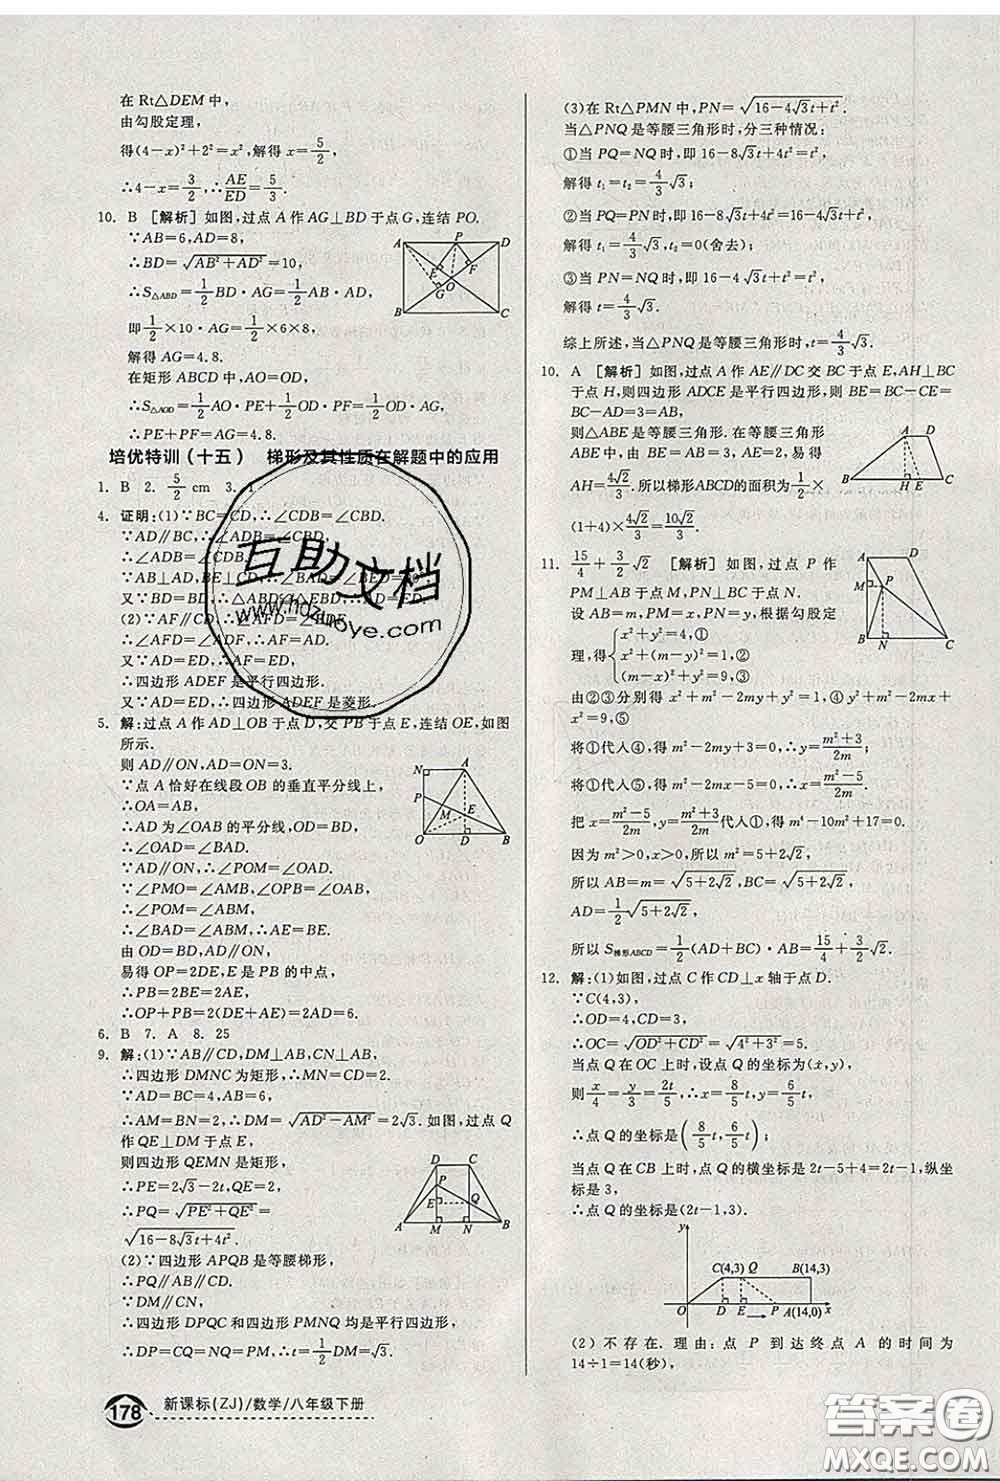 在 Rt△DEM 中,
由勾股定理,
得(4-x)²+2²=x²,解得 x=5/2,
∴4-x=3/2,∴AE/ED=5/3.
10. B [解析]如图,过点 A 作 AG⊥BD 于点 G,连结 PO.
∵AB=6,AD=8,
∴BD=√(AB²+AD²)=10,
∴S△ABD=1/2 BD·AG=1/2 AB·AD,
即1/2×10·AG=1/2×6×8,
解得 AG=4.8.
在矩形 ABCD 中,AO=OD,
∴S△AOD=1/2 AO·PE+1/2 OD·PF=1/2 OD·AG,
∴PE+PF=AG=4.8.
A P D
E F
O
G
B C
培优特训(十五) 梯形及其性质在解题中的应用
1. B 2. 5/2 cm 3. 1
4. 证明:(1)∵BC=CD,∴∠CDB=∠CBD.
∵AD∥BC,∴∠ADB=∠CBD.
又∵BD=BD,∴△ABD≌△EBD,∴AD=ED.
(2)∵AF∥CD,∴∠AFD=∠EDF.
∴∠AFD=∠ADF,∴AF=AD.
又∵AD=ED,∴AF=ED.
∴四边形 ADEF 是平行四边形.
又∵AD=ED,∴四边形 ADEF 是菱形.
5. 解:过点 A 作 AD⊥OB 于点 D,交 PB 于点 E,连结 OE,如图
所示.
则 AD∥ON,AD=ON=3.
∵点 A 恰好在线段 OB 的垂直平分线上,
∴OA=AB,
∴AD 为∠OAB 的平分线,
∴∠OAD=∠BAD.
∵AD∥ON,∴∠POA=∠OAD.
∵∠PMO=∠AMB,∠OPB=∠OAB,
∴∠POM=∠ABM,
∴∠BAD=∠ABM,∴AE=BE.
由 OD=BD,AD∥ON,
易得 OP=2DE,E 是 PB 的中点,
∴PB=2BE=2AE,
∴OP+PB=2(DE+AE)=2AD=6.
N A
P
M E
O D B
6. B 7. A 8. 25
9. 解:(1)∵AB∥CD,DM⊥AB,CN⊥AB,
∴四边形 DMNC 为矩形,∴MN=CD=2.
∵AD=BC=4,AB=6,
∴AM=BN=2,∴DM=√(AD²-AM²)=2√3.如图,过点 Q
作 QE⊥DM 于点 E,
则四边形 QEMN 是矩形,
∴PE=2√3-√3t-√3t=2√3-2√3t,
∴PQ=√(PE²+QE²)=
√(16-8√3t+4t²).
(2)∵四边形 APQB 是等腰梯形,
∴PQ∥AB∥CD.
∵DM∥CN,
∴四边形 DPQC 和四边形 PMNQ 均是平行四边形,
∴DP=CQ=NQ=PM,∴t=√3.
D C
P
E Q
A M N B
(3)在 Rt△PMN 中,PN=√(16-4√3t+t²).
当△PNQ 是等腰三角形时,分三种情况:
①当 PQ=NQ 时,即 16-8√3t+4t²=t²,
解得 t₁=t₂=4/3√3;
②当 PQ=PN 时,即 16-8√3t+4t²=16-4√3t+t²,
解得 t₁=4/3√3,t₂=0(舍去);
③当 PN=NQ 时,即 16-4√3t+t²=t²,
解得 t=4/3√3.
综上所述,当△PNQ 是等腰三角形时,t=4/3√3.
10. A [解析]如图,过点 A 作 AE∥DC 交 BC 于点 E,AH⊥BC
于点 H,则四边形 ADCE 是平行四边形,则 BE=BC-CE=
BC-AD=3=AB,
则△ABE 是等腰三角形,易得
AH=4√2/3.所以梯形ABCD的面积为1/2×
(1+4)×4√2/3=10√2/3.
A D
B H E C
11. 15/4+3/2√2 [解析]如图,过点 P 作
PM⊥AB 于点 M,PN⊥BC 于点 N.
设 AB=m,PM=x,PN=y,根据勾股定
理,得{x²+y²=4,①
x²+(m-y)²=1,②
y²+(m-x)²=9,③
由②③分别得 x²+m²-2my+y²=1,④x²+m²-2mx+
y²=9,⑤
将①代入④,得 m²-2my+3=0,∴y=(m²+3)/2m;
将①代入⑤,得 m²-2mx-5=0,∴x=(m²-5)/2m.
把 x=(m²-5)/2m,y=(m²+3)/2m代入①,得 m⁴-10m²+17=0.
因为 m²>0,x>0,所以 m²=5+2√2,
所以 AB=m=√(5+2√2),BC=√(5+2√2),
AD=1/2√(5+2√2),
所以 S梯形ABCD=1/2(AD+BC)·AB=15/4+3/2√2.
A D
M P
B N C
12. 解:(1)如图,过点 C 作 CD⊥x 轴于点 D.
∵C(4,3),
∴OD=4,CD=3,
∴OC=√(OD²+CD²)=√(4²+3²)=5.
当点 Q 在 OC 上时,设点 Q 的坐标为(x,y),
则x/4=y/3=2t/5,∴x=8/5t,y=6/5t,
∴点 Q 的坐标是(8/5t,6/5t);
当点 Q 在 CB 上时,点 Q 的横坐标是 2t-5+4=2t-1,纵坐
标是 3,
∴点 Q 的坐标是(2t-1,3).
y
C(4,3) Q B(14,3)
O D E P A(14,0) x
(2)不存在.理由:点 P 到达终点 A 的时间为
14÷1=14(秒),
178 新课标(ZJ)/数学/八年级下册
互助文档
www.hdzuoye.com
答案圈
MXQE.COM